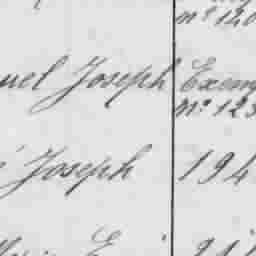 nº 120
uel Joseph Exem
nº 123
é Joseph 194